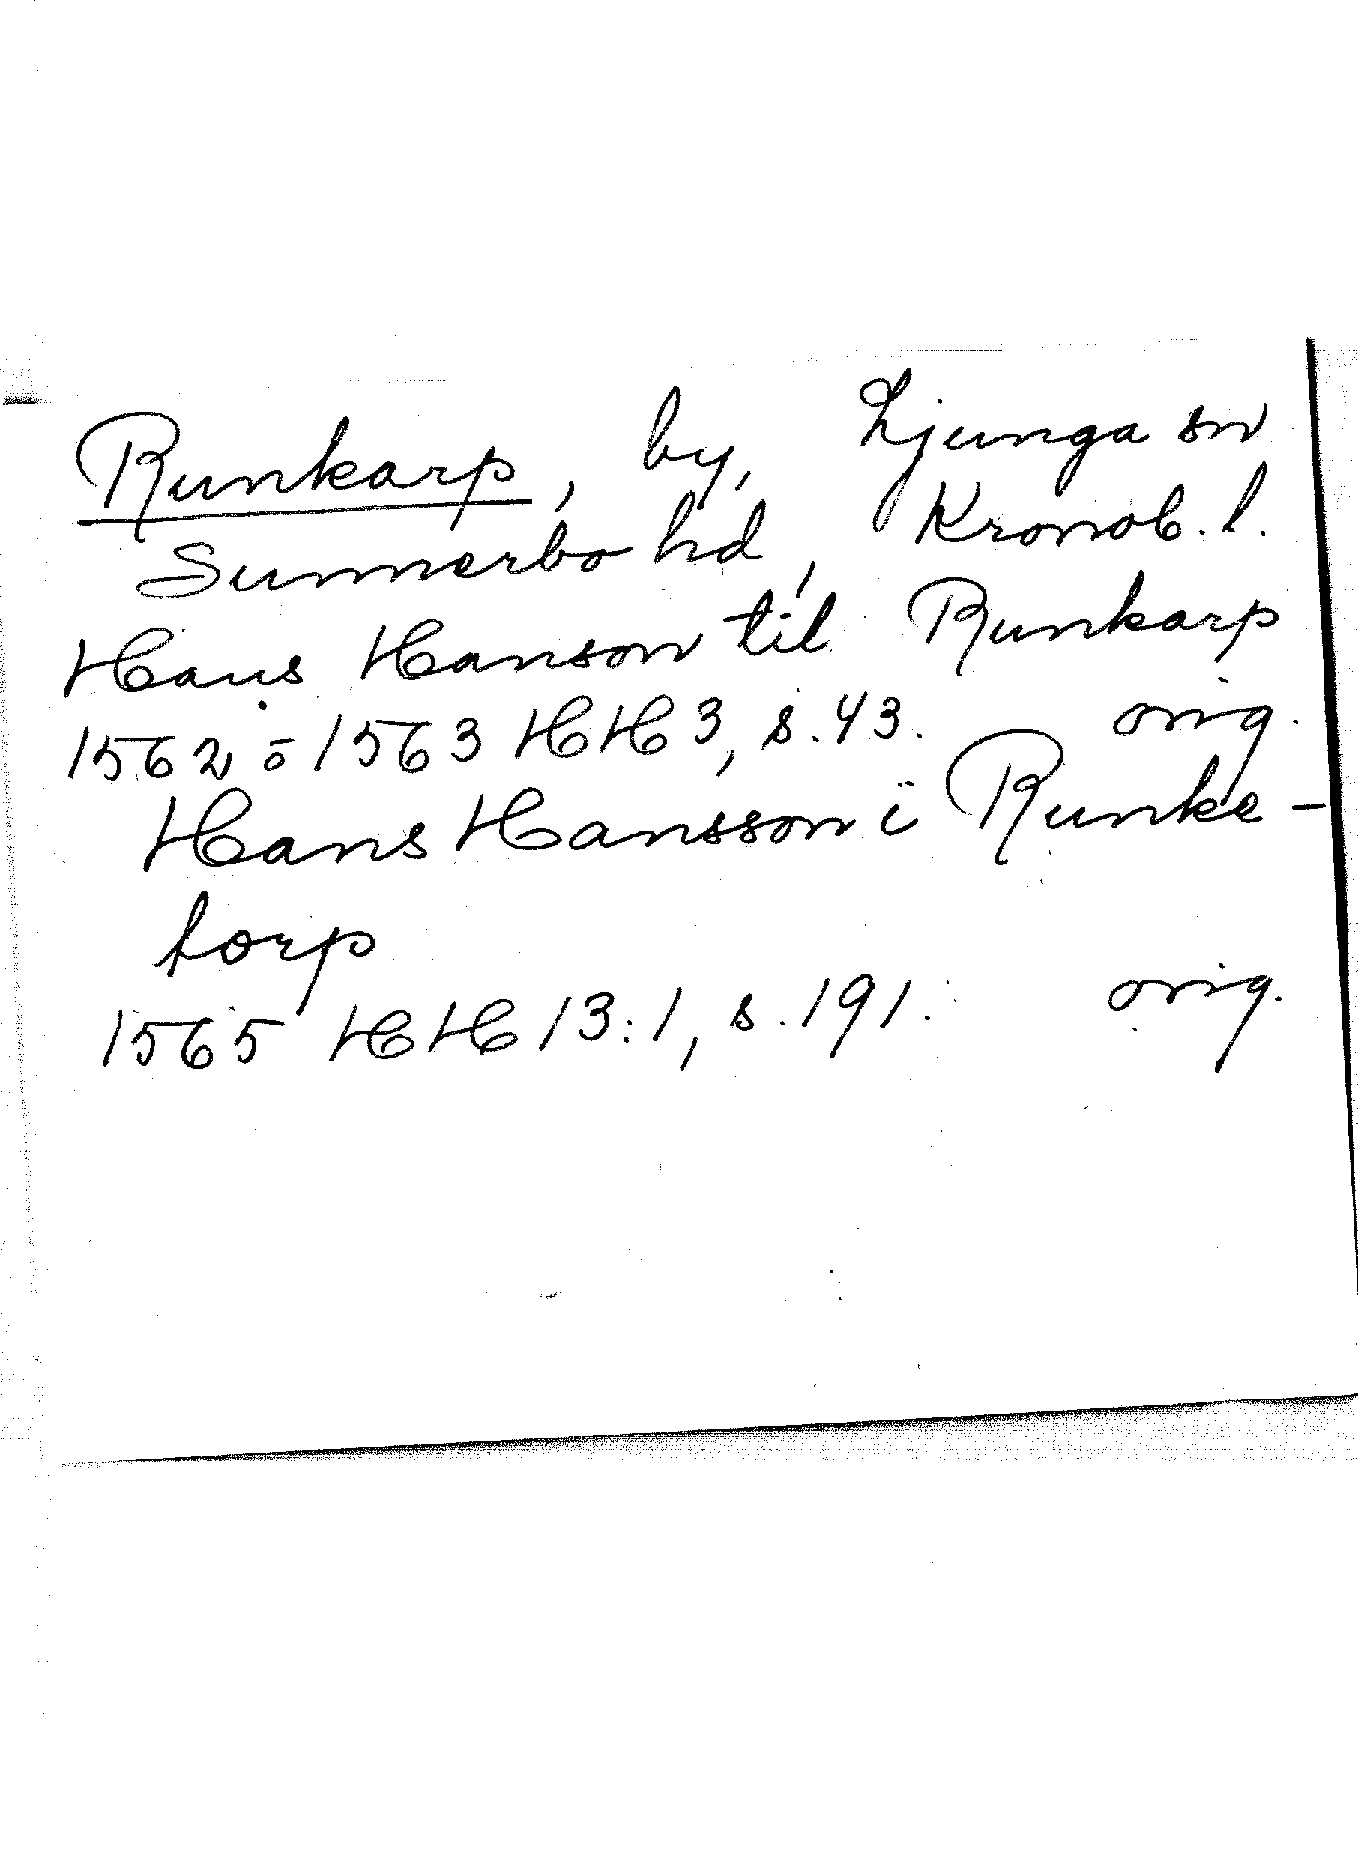 Runkarp, by, Ljunga sn
Sunnerbo hd, Kronob. l.
Hans Hanson til Runkarp
1562 o 1563 HH 3, s. 43. orig.
Hans Hansson i Runke-
torp
1565 HH 13:1, s. 191. orig.